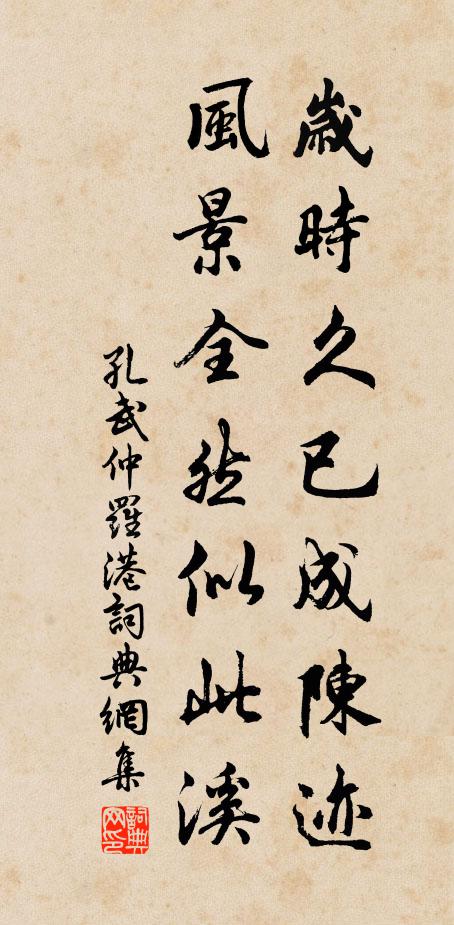 歲時久已成陳迹
風景全然似此溪
孔武仲羅港詞典網集
詞典網印